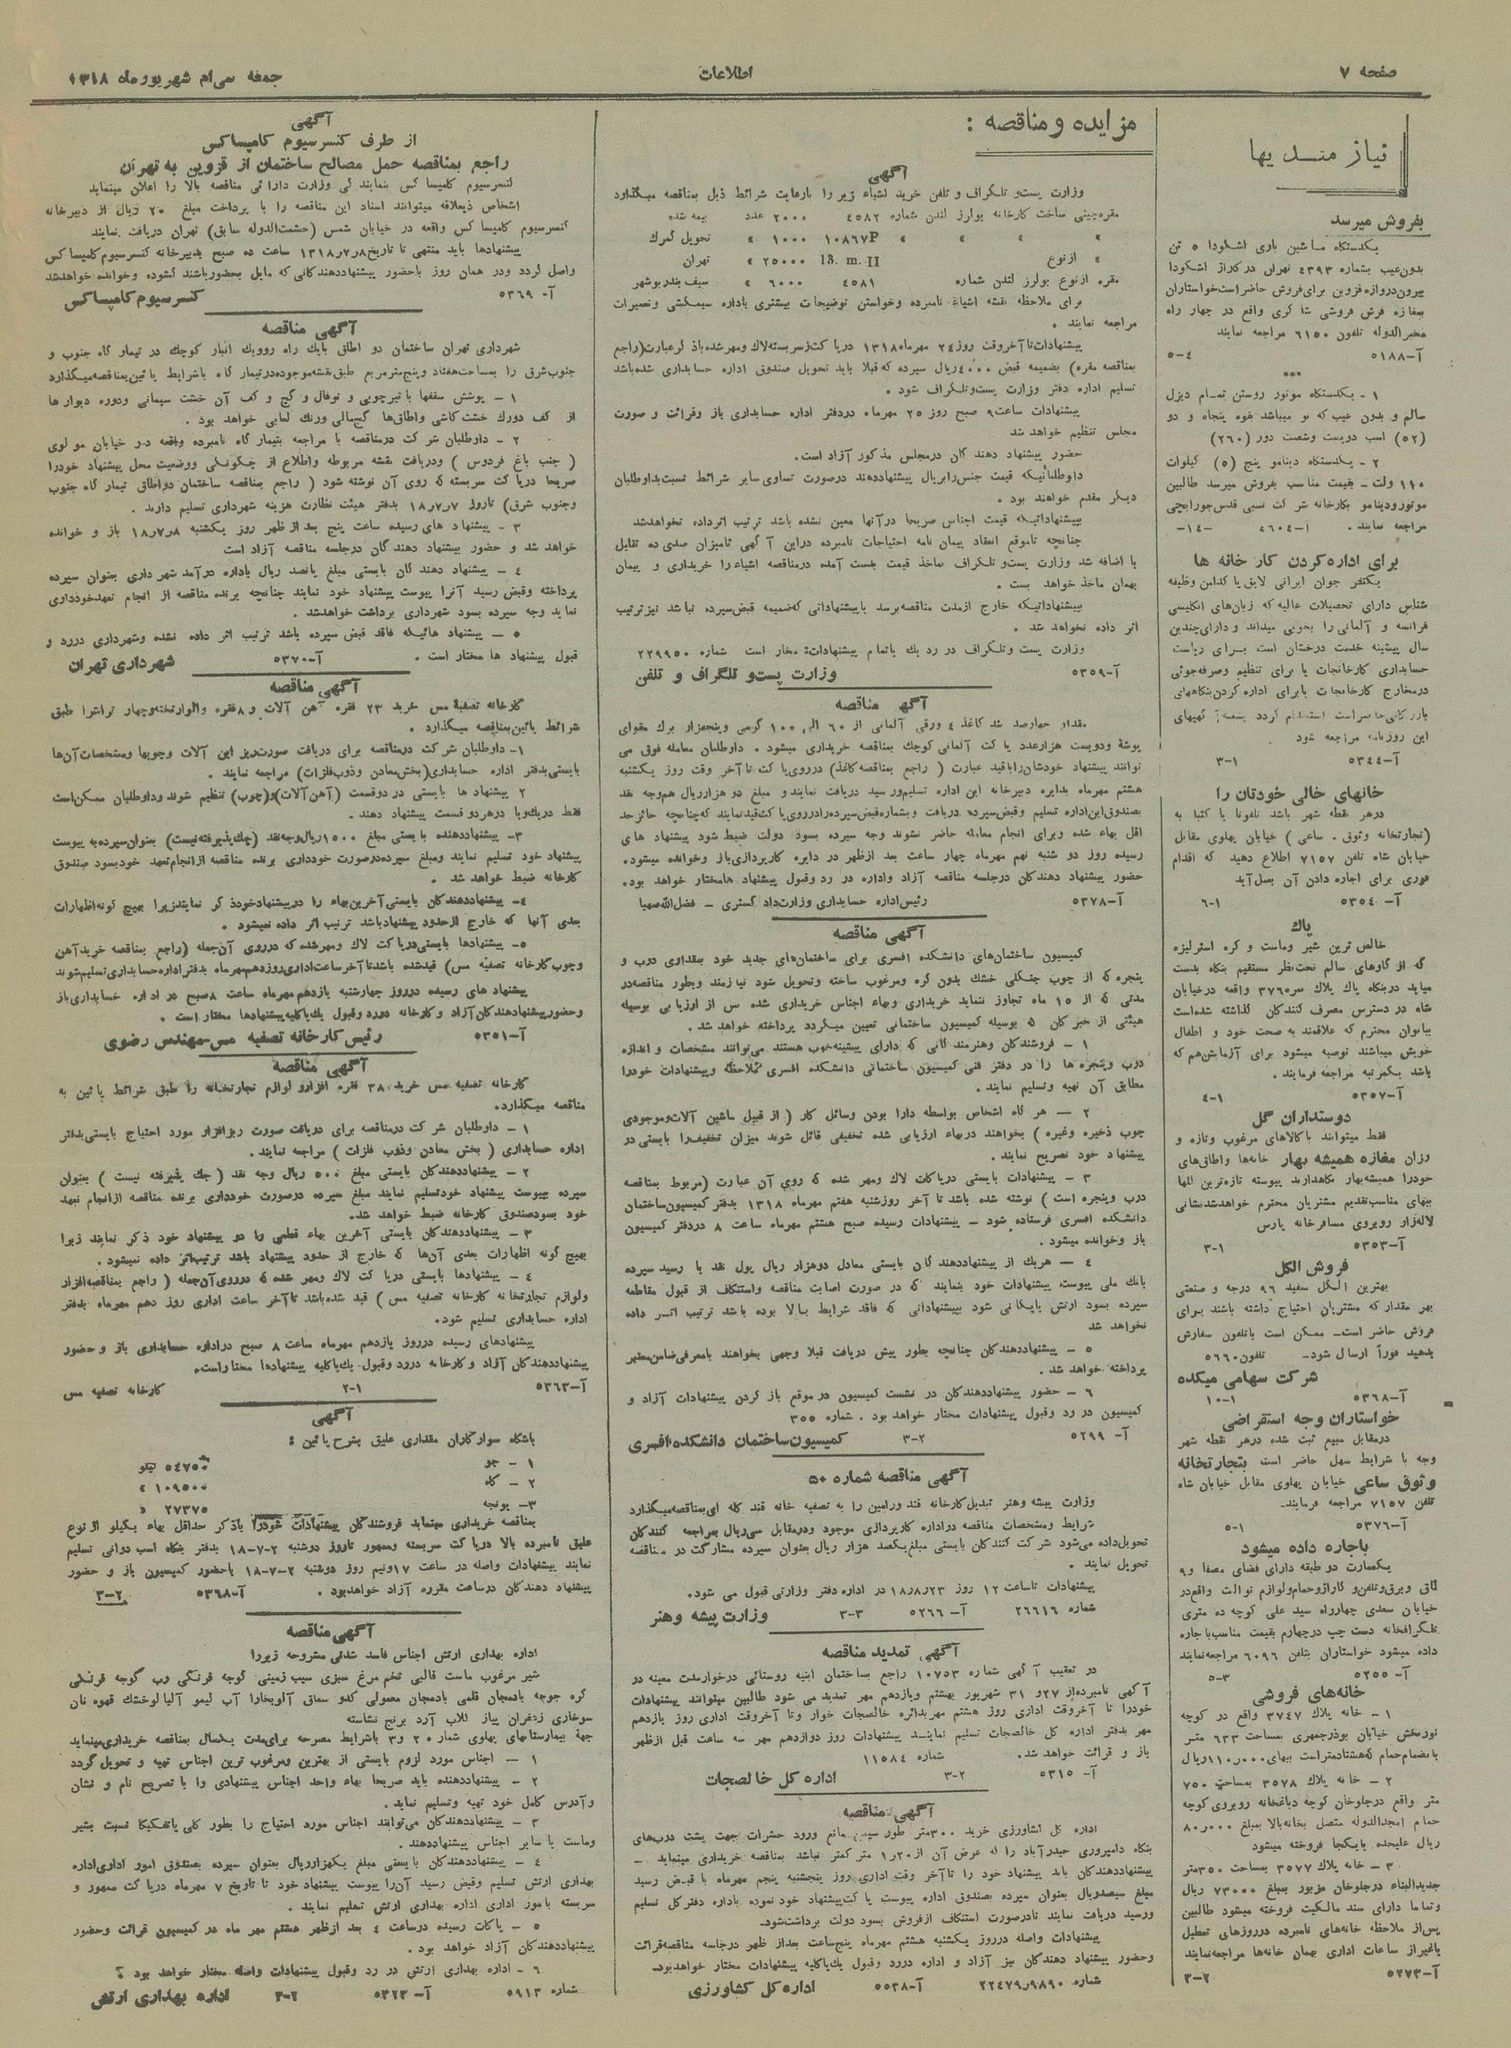 صفحه ۷
اطلاعات
جمعه سی‌ام شهریور ماه ۱۳۱۸
نیاز مندیها
بفروش میرسد
یکدستگاه ماشین باری اشکودا ۵ تن
بدون‌عیب بشماره ۴۳۹۳ تهران در گاراژ اشکودا
بیرون دروازه قزوین برای فروش حاضر است خواستاران
بمغازه فرش فروشی شاکری واقع در چهار راه
مخبرالدوله تلفون ۶۱۵۰ مراجعه نمایند
آ-۵۱۸۸ ۴-۵
***
۱ - یکدستگاه موتور روستن تمام دیزل
سالم و بدون عیب که نو میباشد بقوه پنجاه و دو
(۵۲) اسب دویست وشصت دور (۲۶۰)
۲ - یکدستگاه دینامو پنج (۵) کیلوات
۱۱۰ ولت - بقیمت مناسب بفروش میرسد طالبین
موتورودینامو بکارخانه شرکت نسبی قدس جورابچی
مراجعه نمایند . آ-۴۶۰۴ -۱۴-
برای اداره کردن کارخانه ها
یکنفر جوان ایرانی لایق با کدامن وظیفه
شناس دارای تحصیلات عالیه که زبان‌های انگلیسی
فرانسه و آلمانی را بخوبی میداند و دارای چندین
سال پیشینه خدمت درخشان است برای ریاست
حسابداری کارخانجات یا برای تنظیم وصرفه‌جوئی
درمخارج کارخانجات یابرای اداره کردن بنگاههای
بازرگانی حاضراست استخدام گردد بشعبه آگهیهای
این روزنامه مراجعه شود
آ-۵۳۴۴ ۱-۳
خانهای خالی خودتان را
درهر نقطه شهر باشد تلفونا یا کتبا به
(تجارتخانه وثوق . ساعی ) خیابان پهلوی مقابل
خیابان شاه تلفن ۷۱۵۷ اطلاع دهید که اقدام
فوری برای اجاره دادن آن بعمل آید
آ- ۵۳۵۴ ۱-۶
پاک
خالص ترین شیر وماست و کره استرلیزه
که از گاوهای سالم تحت‌نظر مستقیم بنگاه بدست
میاید دربنگاه پاک پلاک سره۳۷۶ واقعه درخیابان
شاه در دسترس مصرف کنندگان گذاشته شده‌است
ببانوان محترم که علاقمند به صحت خود و اطفال
خویش میباشند توصیه میشود برای آزمایش‌هم که
باشد یکمرتبه مراجعه فرمایند.
آ-۵۳۵۷ ۱-۴
دوستداران گل
فقط میتوانند باکالاهای مرغوب وتازه و
رزان مغازه همیشه بهار خانه‌ها واطاق‌های
خودرا همیشه‌بهار نگاهدارند پیوسته تازه‌ترین گلها
ببهای مناسب‌تقدیم مشتریان محترم خواهدشدنشانی
لاله‌زار روبروی مسافرخانه پارس
آ-۵۳۵۳ ۱-۳
فروش الکل
بهترین الکل سفید ۹۶ درجه و صنعتی
بهر مقدار که مشتریان احتیاج داشته باشند برای
فروش حاضر است- ممکن است باتلفون سفارش
بدهید فوراً ارسال شود- تلفون۵۶۶۰
شرکت سهامی میکده
آ-۵۳۶۸ ۱-۱۰
خواستاران وجه استقراضی
درمقابل مبیع ثبت شده درهر نقطه شهر
وجه با شرایط سهل حاضر است بتجارتخانه
وثوق ساعی خیابان پهلوی مقابل خیابان شاه
تلفن ۷۱۵۷ مراجعه فرمایند.
آ-۵۳۷۶ ۱-۵
باجاره داده میشود
یکعمارت دو طبقه دارای فضای مصفا و۹
خیابان سعدی چهارراه سید علی کوچه ده متری
تلگرافخانه دست چپ درچهارم بقیمت مناسب باجاره
داده میشود خواستاران بتلفن ۶۰۹۶ مراجعه‌نمایند
آ- ۵۲۵۵ ۳-۵
خانه‌های فروشی
۱ - خانه پلاک ۳۷۴۷ واقع در کوچه
نوربخش خیابان بوذرجمهری بمساحت ۶۳۳ متر
۲ - خانه پلاک ۳۵۷۸ بمساحت ۷۵۰
متر واقع درجلوخان کوچه دباغخانه روبروی کوچه
ریال علیحده یایکجا فروخته میشود
۳ - خانه پلاک ۳۵۷۷ بمساحت ۳۵۰متر
جدیدالبناء درجلوخان مزبور بمبلغ ۷۳۰۰۰ ریال
وتماما دارای سند مالکیت فروخته میشود طالبین
پس‌از ملاحظه خانه‌های نامبرده درروزهای تعطیل
یاغیراز ساعات اداری بهمان خانه‌ها مراجعه‌نمایند
آ-۵۲۷۳ ۲-۳
مزایده و مناقصه :
آگهی
وزارت پست و تلگراف و تلفن خرید اشیاء زیر را بارعایت شرائط ذیل بمناقصه میگذارد
مقره‌چینی ساخت کارخانه بولرز لندن شماره ۴۵۸۲ ۲۰۰۰ عدد بیمه شده
» » » » ۱۰۸۶۷P ۱۰۰۰ » تحویل گمرک
» ازنوع 13. m. II ۲۵۰۰۰ » تهران
مقره ازنوع بولرز لندن شماره ۴۵۸۱ ۶۰۰۰ » سیف بندربوشهر
برای ملاحظه نقشه اشیاء نامبرده وخواستن توضیحات بیشتری باداره سیمکشی وتعمیرات
مراجعه نمایند .
پیشنهادات‌تاآخروقت روز ۲۴ مهرماه ۱۳۱۸ درپاکت سربسته‌لاک ومهرشده‌باذکرعبارت(راجع
بمناقصه مقره) بضمیمه قبض ۴۰۰۰ریال سپرده که‌قبلا باید تحویل صندوق اداره حسابداری شده‌باشد
تسلیم اداره دفتر وزارت پست‌وتلگراف شود .
پیشنهادات ساعت۹ صبح روز ۲۵ مهرماه دردفتر اداره حسابداری باز وقرائت و صورت
مجلس تنظیم خواهد شد
حضور پیشنهاد دهندگان درمجلس مذکور آزاد است.
داوطلبانیکه قیمت جنس‌رابریال پیشنهاددهند درصورت تساوی‌سایر شرائط نسبت‌بداوطلبان
دیگر مقدم خواهند بود .
بپیشنهاداتیکه قیمت اجناس صریحا درآنها معین نشده باشد ترتیب اثرداده نخواهدشد
چنانچه تاموقع انعقاد پیمان نامه احتیاجات نامبرده دراین آگهی تامیزان صدی ده تقلیل
یا اضافه شد وزارت پست‌وتلگراف بمأخذ قیمت بدست آمده درمناقصه اشیاء را خریداری و پیمان
بهمان مأخذ خواهد بست .
بپیشنهاداتیکه خارج ازمدت مناقصه برسد یاپیشنهاداتی که‌ضمیمه قبض‌سپرده نباشد نیزترتیب
اثر داده نخواهد شد .
وزارت پست وتلگراف در رد یک یاتمام پیشنهادات مختار است شماره ۲۲۹۹۵۰
آ-۵۳۵۹ وزارت پست و تلگراف و تلفن
آگهی مناقصه
مقدار چهارصد بند کاغذ ۴ ورقی آلمانی از ۶۰ الی ۱۰۰ گرمی وپنجهزار برگ مقوای
پوشهٔ ودویست هزارعدد پاکت آلمانی کوچک بمناقصه خریداری میشود . داوطلبان معامله فوق می
توانند پیشنهاد خودشان‌راباقید عبارت ( راجع بمناقصه کاغذ) درروی پاکت تاآخر وقت روز یکشنبه
هشتم مهرماه بدایره دبیرخانه این اداره تسلیم‌ورسید دریافت نمایند و مبلغ دو هزارریال هم‌وجه نقد
بصندوق‌این‌اداره تسلیم وقبض‌سپرده دریافت وبشماره‌قبض‌سپرده‌رادرروی‌پاکت‌قیدنمایند که‌چنانچه حائزحد
اقل بهاء شده وبرای انجام معامله حاضر نشوند وجه سپرده بسود دولت ضبط شود پیشنهاد های
رسیده روز دو شنبه نهم مهرماه چهار ساعت بعد ازظهر در دایره کارپردازی‌باز وخوانده میشود.
حضور پیشنهاد دهندگان درجلسه مناقصه آزاد واداره در رد وقبول پیشنهاد هامختار خواهد بود.
آ-۵۳۷۸ رئیس‌اداره حسابداری وزارت‌دادگستری - فضل‌الله‌صهبا
آگهی مناقصه
کمیسیون ساختمان‌های دانشکده افسری برای ساختمان‌های جدید خود بمقداری درب و
پنجره که از چوب جنگلی خشک بدون گره ومرغوب ساخته وتحویل شود نیازمند وبطور مناقصه‌در
مدتی که از ۱۵ ماه تجاوز ننماید خریداری وبهاء اجناس خریداری شده پس از ارزیابی بوسیله
هیئتی از خبرگان که بوسیله کمیسیون ساختمانی تعیین میگردد پرداخته خواهد شد.
۱ - فروشندگان وهنرمندگانی که دارای پیشینه‌خوب هستند می‌توانند مشخصات و اندازه
درب وپنجره ها را در دفتر فنی کمیسیون ساختمانی دانشکده افسری ملاحظه وپیشنهادات خودرا
مطابق آن تهیه وتسلیم نمایند.
۲ - هر گاه اشخاص بواسطه دارا بودن وسائل کار ( از قبیل ماشین آلات‌وموجودی
چوب ذخیره وغیره ) بخواهند دربهاء ارزیابی شده تخفیفی قائل شوند میزان تخفیف‌را بایستی در
پیشنهاد خود تصریح نمایند.
۳ - پیشنهادات بایستی درپاکات لاک ومهر شده که روی آن عبارت (مربوط بمناقصه
درب وپنجره است ) نوشته شده باشد تا آخر روزشنبه هفتم مهرماه ۱۳۱۸ بدفتر کمیسیون‌ساختمان
دانشکده افسری فرستاده شود - پیشنهادات رسیده صبح هشتم مهرماه ساعت ۸ دردفتر کمیسیون
باز وخوانده میشود.
۴ - هریک از پیشنهاددهندگان بایستی معادل دوهزار ریال پول نقد یا رسید سپرده
بانک ملی پیوست پیشنهادات خود بنمایند که در صورت اصابت مناقصه واستنکاف از قبول مقاطعه
سپرده بسود ارتش بایگانی شود بپیشنهاداتی که فاقد شرایط بالا بوده باشد ترتیب اثر داده
نخواهد شد
۵ - پیشنهاددهندگان چنانچه بطور پیش دریافت قبلا وجهی بخواهند بامعرفی‌ضامن‌معتبر
پرداخته خواهد شد.
۶ - حضور پیشنهاددهندگان در نشست کمیسیون در موقع باز کردن پیشنهادات آزاد و
کمیسیون در رد وقبول پیشنهادات مختار خواهد بود . شماره ۳۵۵
آ- ۵۲۹۹ ۲-۳ کمیسیون‌ساختمان دانشکده‌افسری
آگهی مناقصه شماره ۵۰
وزارت پیشه وهنر تبدیل‌کارخانه قند ورامین را به تصفیه خانه قند کله ای‌بمناقصه‌میگذارد
شرایط ومشخصات مناقصه دراداره کارپردازی موجود ودرمقابل سی‌ریال بمراجعه کنندگان
تحویل‌داده‌می‌شود شرکت کنندگان بایستی مبلغ‌یکصد هزار ریال بعنوان سپرده مشارکت در مناقصه
تحویل نمایند .
پیشنهادات تاساعت ۱۲ روز ۱۸٫۸٫۲۳ در اداره دفتر وزارتی قبول می شود.
شماره ۲۶۶۱۶ آ- ۵۲۶۶ ۳-۳ وزارت پیشه وهنر
آگهی تمدید مناقصه
در تعقیب آگهی شماره ۱۰۷۵۳ راجع بساختمان ابنیه روستائی درخوارمدت معینه در
آگهی نامبرده‌از ۲۷و ۳۱ شهریور بهشتم ویازدهم مهر تمدید می شود طالبین میتوانند پیشنهادات
خودرا تا آخروقت اداری روز هشتم مهربدائره خالصجات خوار وتاآخروقت اداری روز یازدهم
مهر بدفتر اداره کل خالصجات تسلیم نمایند پیشنهادات روز دوازدهم مهر سه ساعت قبل ازظهر
باز و قرائت خواهد شد. شماره ۱۱۵۸۴
آ- ۵۳۱۵ ۲-۳ اداره کل خالصجات
آگهی مناقصه
اداره کل کشاورزی خرید ۳۰۰متر طور سیمی مانع ورود حشرات جهت پشت درب‌های
بنگاه دامپروری حیدرآباد را که عرض آن از۱٫۲۰ متر کمتر نباشد بمناقصه خریداری مینماید -
پیشنهاددهندگان باید پیشنهاد خود را تاآخر وقت اداری روز پنجشنبه پنجم مهرماه با قبض رسید
مبلغ سیصدریال بعنوان سپرده بصندوق اداره پیوست پاکت‌پیشنهاد خود نموده باداره دفترکل تسلیم
ورسید دریافت نمایند تادرصورت استنکاف ازفروش بسود دولت برداشت‌شود.
پیشنهادات واصله درروز یکشنبه هشتم مهرماه پنج‌ساعت بعداز ظهر درجلسه مناقصه‌قرائت
وحضور پیشنهاد دهندگان نیز آزاد و اداره دررد وقبول یک‌یاکلیه پیشنهادات مختار خواهدبود.
شماره ۲۲۴۷۹٫۹۸۹۰ آ-۵۵۳۸ اداره کل کشاورزی
آگهی
از طرف کنسرسیوم کامپساکس
راجع بمناقصه حمل مصالح ساختمان از قزوین به تهران
کنسرسیوم کامپساکس بنمایندگی وزارت دارائی مناقصه بالا را اعلان مینماید
اشخاص ذیعلاقه میتوانند اسناد این مناقصه را با پرداخت مبلغ ۲۰ ریال از دبیرخانه
کنسرسیوم کامپساکس واقعه در خیابان شمس (حشمت‌الدوله سابق) تهران دریافت نمایند
پیشنهادها باید منتهی تا تاریخ۱۳۱۸٫۷٫۸ ساعت ده صبح بدبیرخانه کنسرسیوم‌کامپساکس
واصل گردد ودر همان روز باحضور پیشنهاددهندگانی که مایل بحضورباشند گشوده وخوانده خواهدشد
آ- ۵۳۶۹ کنسرسیوم کامپساکس
آگهی مناقصه
شهرداری تهران ساختمان دو اطاق بایک راه رووبک انبار کوچک در تیمار گاه جنوب و
جنوب‌شرق را بمساحت‌هفتاد وپنج‌مترمربع طبق‌نقشه‌موجوده‌درتیمارگاه باشرایط پائین‌بمناقصه‌میگذارد
۱ - پوشش سقفها باتیرچوبی و توفال و گچ و کف آن خشت سیمانی ودوره دیوارها
از کف دورک خشت‌کاشی واطاق‌ها گچمالی ورنگ لعابی خواهد بود .
۲ - داوطلبان شرکت درمناقصه با مراجعه بتیمار گاه نامبرده واقعه در خیابان مولوی
( جنب باغ فردوس ) ودریافت نقشه مربوطه واطلاع از چگونگی ووضعیت محل پیشنهاد خودرا
صریحا درپاکت سربسته که روی آن نوشته شود ( راجع بمناقصه ساختمان دواطاق تیمارگاه جنوب
وجنوب شرق) تاروز ۱۸٫۷٫۷ بدفتر هیئت نظارت هزینه شهرداری تسلیم دارند .
۳ - پیشنهاد های رسیده ساعت پنج بعد از ظهر روز یکشنبه ۱۸٫۷٫۸ باز و خوانده
خواهد شد و حضور پیشنهاد دهندگان درجلسه مناقصه آزاد است
۴ - پیشنهاد دهندگان بایستی مبلغ پانصد ریال باداره درآمد شهرداری بعنوان سپرده
پرداخته وقبض رسید آنرا پیوست پیشنهاد خود نمایند چنانچه برنده مناقصه از انجام تعهدخودداری
نماید وجه سپرده بسود شهرداری برداشت خواهدشد.
۵ - پیشنهاد هائیکه فاقد قبض سپرده باشد ترتیب اثر داده نشده وشهرداری دررد و
قبول پیشنهاد ها مختار است . آ-۵۳۷۰ شهرداری تهران
آگهی مناقصه
کارخانه تصفیهٔ مس خرید ۲۳ فقره آهن آلات و ۸فقره والوارتخته‌وچهار تراشرا طبق
شرائط پائین‌بمناقصه میگذارد .
۱- داوطلبان شرکت درمناقصه برای دریافت صورت‌ریز این آلات وچوبها ومشخصات آن‌ها
بایستی‌بدفتر اداره حسابداری(بخش‌معادن وذوب‌فلزات) مراجعه نمایند .
۲ پیشنهاد ها بایستی در دوقسمت (آهن‌آلات)و(چوب) تنظیم شوند وداوطلبان ممکن‌است
فقط دریک‌ویا درهردو قسمت پیشنهاد دهند.
۳- پیشنهاددهنده بایستی مبلغ ۱۵۰۰ریال‌وجه‌نقد (چک‌پذیرفته‌نیست) بعنوان‌سپرده‌به پیوست
پیشنهاد خود تسلیم نمایند ومبلغ سپرده‌درصورت خودداری برنده مناقصه ازانجام‌تعهد خودبسود صندوق
کارخانه ضبط خواهد شد .
۴- پیشنهاددهندگان بایستی‌آخرین‌بهاء را درپیشنهادخودذکر نمایندزیرا بهیچ گونه‌اظهارات
بعدی آنها که خارج ازحدود پیشنهادباشد ترتیب اثر داده نمیشود .
۵- پیشنهادها بایستی‌درپاکت لاک ومهرشده که درروی آن‌جمله (راجع بمناقصه خریدآهن
وچوب‌کارخانه تصفیه مس) قیدشده باشدتاآخرساعت‌اداری‌روزدهم‌مهرماه بدفتراداره‌حسابداری‌تسلیم‌شوند
پیشنهاد های رسیده درروز چهارشنبه یازدهم‌مهرماه ساعت ۸صبح در اداره حسابداری‌باز
وحضورپیشنهاددهندگان‌آزاد وکارخانه دررد وقبول یک‌یاکلیه‌پیشنهادها مختار است .
آ-۵۳۵۱ رئیس‌کارخانه تصفیه مس-مهندس رضوی
آگهی مناقصه
کارخانه تصفیه مس خرید ۳۸ فقره افزارو لوازم نجارتخانه را طبق شرائط پائین به
مناقصه میگذارد.
۱ - داوطلبان شرکت درمناقصه برای دریافت صورت ریزافزار مورد احتیاج بایستی‌بدفتر
اداره حسابداری ( بخش معادن وذوب فلزات ) مراجعه نمایند.
۲ - پیشنهاددهندگان بایستی مبلغ ۵۰۰ ریال وجه نقد ( چک پذیرفته نیست ) بعنوان
سپرده بپیوست پیشنهاد خودتسلیم نمایند مبلغ سپرده درصورت خودداری برنده مناقصه ازانجام تعهد
خود بسودصندوق کارخانه ضبط خواهد شد.
۳ - پیشنهاددهندگان بایستی آخرین بهاء قطعی را در پیشنهاد خود ذکر نمایند زیرا
بهیچ گونه اظهارات بعدی آن‌ها که خارج از حدود پیشنهاد باشد ترتیب‌اثر داده نمیشود.
۴ - پیشنهادها بایستی درپاکت لاک ومهر شده که درروی آن‌جمله ( راجع بمناقصه‌افزار
ولوازم نجارتخانه کارخانه تصفیه مس ) قید شده‌باشد تاآخر ساعت اداری روز دهم مهرماه بدفتر
اداره حسابداری تسلیم شود.
پیشنهادهای رسیده درروز یازدهم مهرماه ساعت ۸ صبح دراداره حسابداری باز و حضور
پیشنهاددهندگان آزاد وکارخانه دررد وقبول یک‌یاکلیه پیشنهادها مختاراست.
آ-۵۳۶۳ ۱-۲ کارخانه تصفیه مس
آگهی
باشگاه سوارکاران مقداری علیق بشرح پائین :
۱ - جو ۵۴۷۵۰ کیلو
۲ - کاه ۱۰۹۵۰۰ »
۳- یونجه ۲۷۳۷۵ »
بمناقصه خریداری مینماید فروشندگان پیشنهادات خودرا باذکر حداقل بهاء یکیلو ازنوع
علیق نامبرده بالا درپاکت سربسته وممهور تاروز دوشنبه ۲-۷-۱۸ بدفتر بنگاه اسب دوانی تسلیم
نمایند پیشنهادات واصله در ساعت ۱۷ونیم روز دوشنبه ۲-۷-۱۸ باحضور کمیسیون باز و حضور
پیشنهاد دهندگان درساعت مقرره آزاد خواهدبود. آ-۵۳۶۸ ۲-۳
آگهی مناقصه
اداره بهداری ارتش اجناس فاسد شدنی مشروحه زیررا
شیر مرغوب ماست قالبی تخم مرغ سبزی سیب زمینی گوجه فرنگی رب گوجه فرنگی
کره جوجه بادمجان قلمی بادمجان معمولی کدو سماق آلوبخارا آب لیمو آلبالوخشک قهوه نان
سوخاری زعفران پیاز گلاب آرد برنج نشاسته
جهة بیمارستانهای پهلوی شماره ۲ و ۳ باشرایط مصرحه برای‌مدت یکسال بمناقصه خریداری‌مینماید
۱ - اجناس مورد لزوم بایستی از بهترین ومرغوب ترین اجناس تهیه و تحویل گردد
۲ - پیشنهاددهنده باید صریحا بهاء واحد اجناس پیشنهادی را با تصریح نام و نشان
وآدرس کامل خود تهیه وتسلیم نماید.
۳ - پیشنهاددهندگان می‌توانند اجناس مورد احتیاج را بطور کلی یاتفکیکا نسبت بشیر
وماست یا سایر اجناس پیشنهاددهند.
۴ - پیشنهاددهندگان بایستی مبلغ یکهزارریال بعنوان سپرده بصندوق امور اداری‌اداره
بهداری ارتش تسلیم وقبض رسید آن‌را پیوست پیشنهاد خود تا تاریخ ۷ مهرماه درپاکت ممهور و
سربسته بامور اداری اداره بهداری ارتش تسلیم نمایند.
۵ - پاکات رسیده درساعت ۴ بعد ازظهر هشتم مهر ماه در کمیسیون قرائت وحضور
پیشنهاددهندگان آزاد خواهد بود .
۶ - اداره بهداری ارتش در رد وقبول پیشنهادات واصله مختار خواهد بود ؟
شماره ۵۹۱۳ آ- ۵۳۲۳ ۲-۳ اداره بهداری ارتش